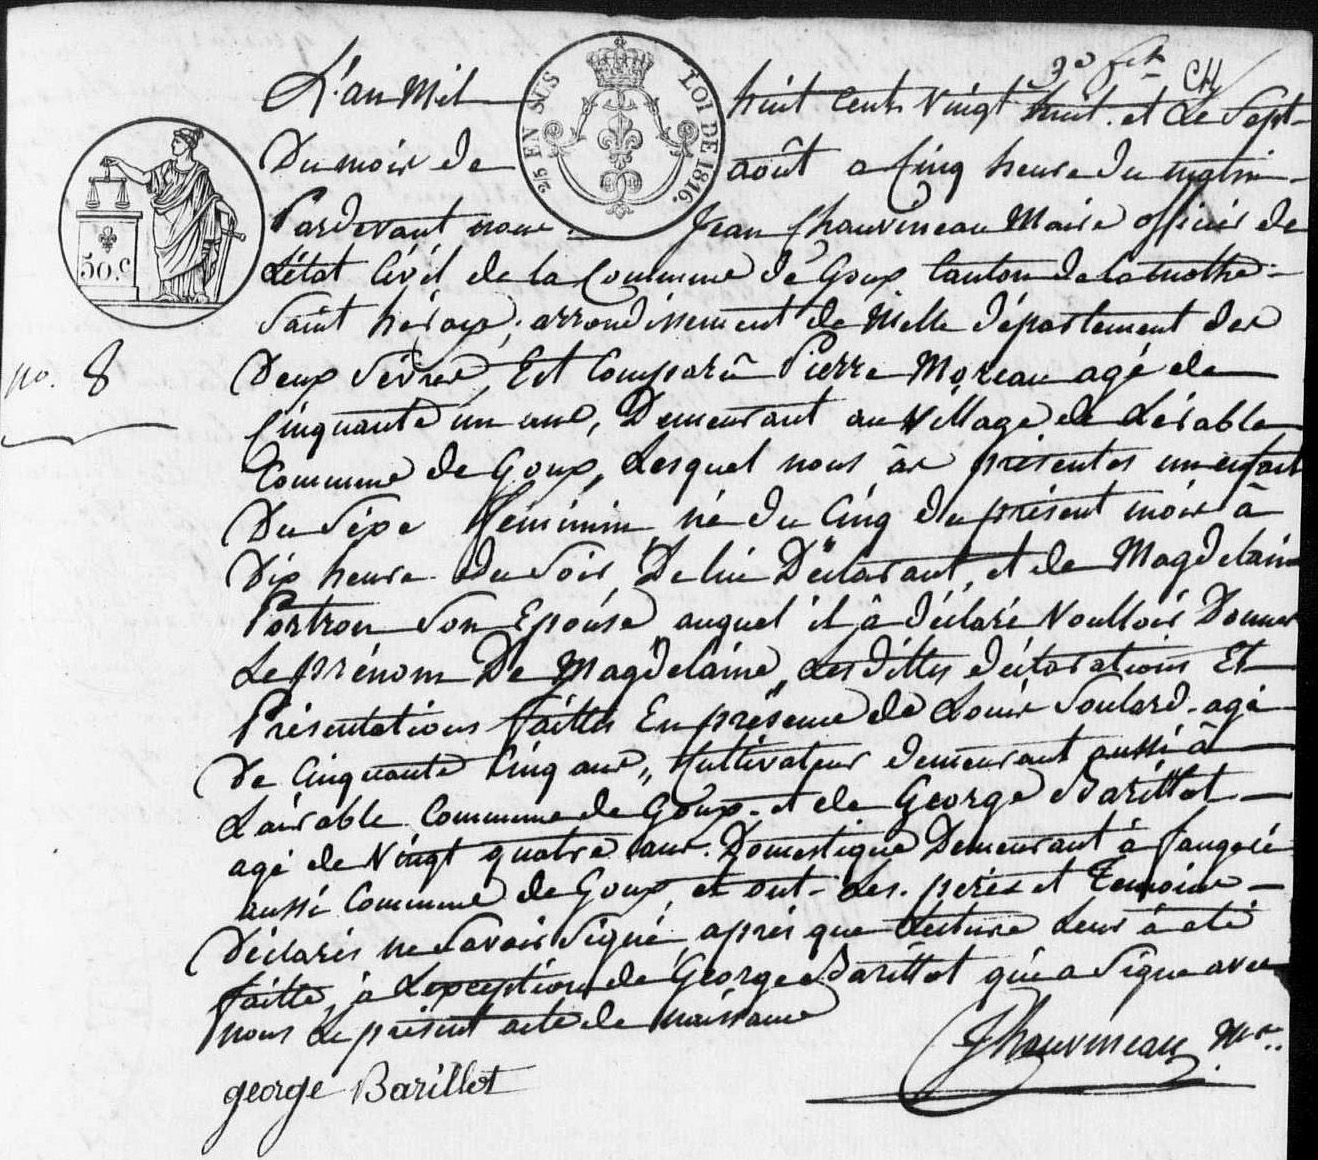 L'an Mil huit Cent Vingt huit et Le Sept
Du mois de août a Cinq heure du matin
Pardevant nous Jean Chauvineau Maire officier de
L'état Civil de la Commune de Goux Canton de Lamothe
Saint héraye, arrondissement de Melle département des
Deux Sèvres, Est Comparu Pierre Moreau agé de
Cinquante un ans, Demeurant au Village de Lérable
Commune de Goux, Lesquel nous à présentes un enfant
Du Séxe féminin né du Cinq du présent mois à
Dix heure du Soir, De lui Déclarant, et de Magdelaine
Portron Son Epouse auquel il à déclaré Voulloir Donner
Le prénom De Magdelaine, Lesdittes déclarations Et
Présentations faittes En présence de Louis Soulard agé
De Cinquante Cinq ans, Cultivateur demeurant aussi à
Lairable Commune de Goux et de George Barillot
agé de Vingt quatre ans Domestique Demeurant à fougeré
aussi Commune de Goux, et ont Les pères et Temoins
Déclarés ne Savoir Signé après que Lecture Leur à été
faitte, à Lexception de George Barillot qui a Signe avec
nous Le présent acte de naissance
george Barillot
JChauvineau Mre.
no. 8
25 EN SUS LOI DE 1816.
50.c